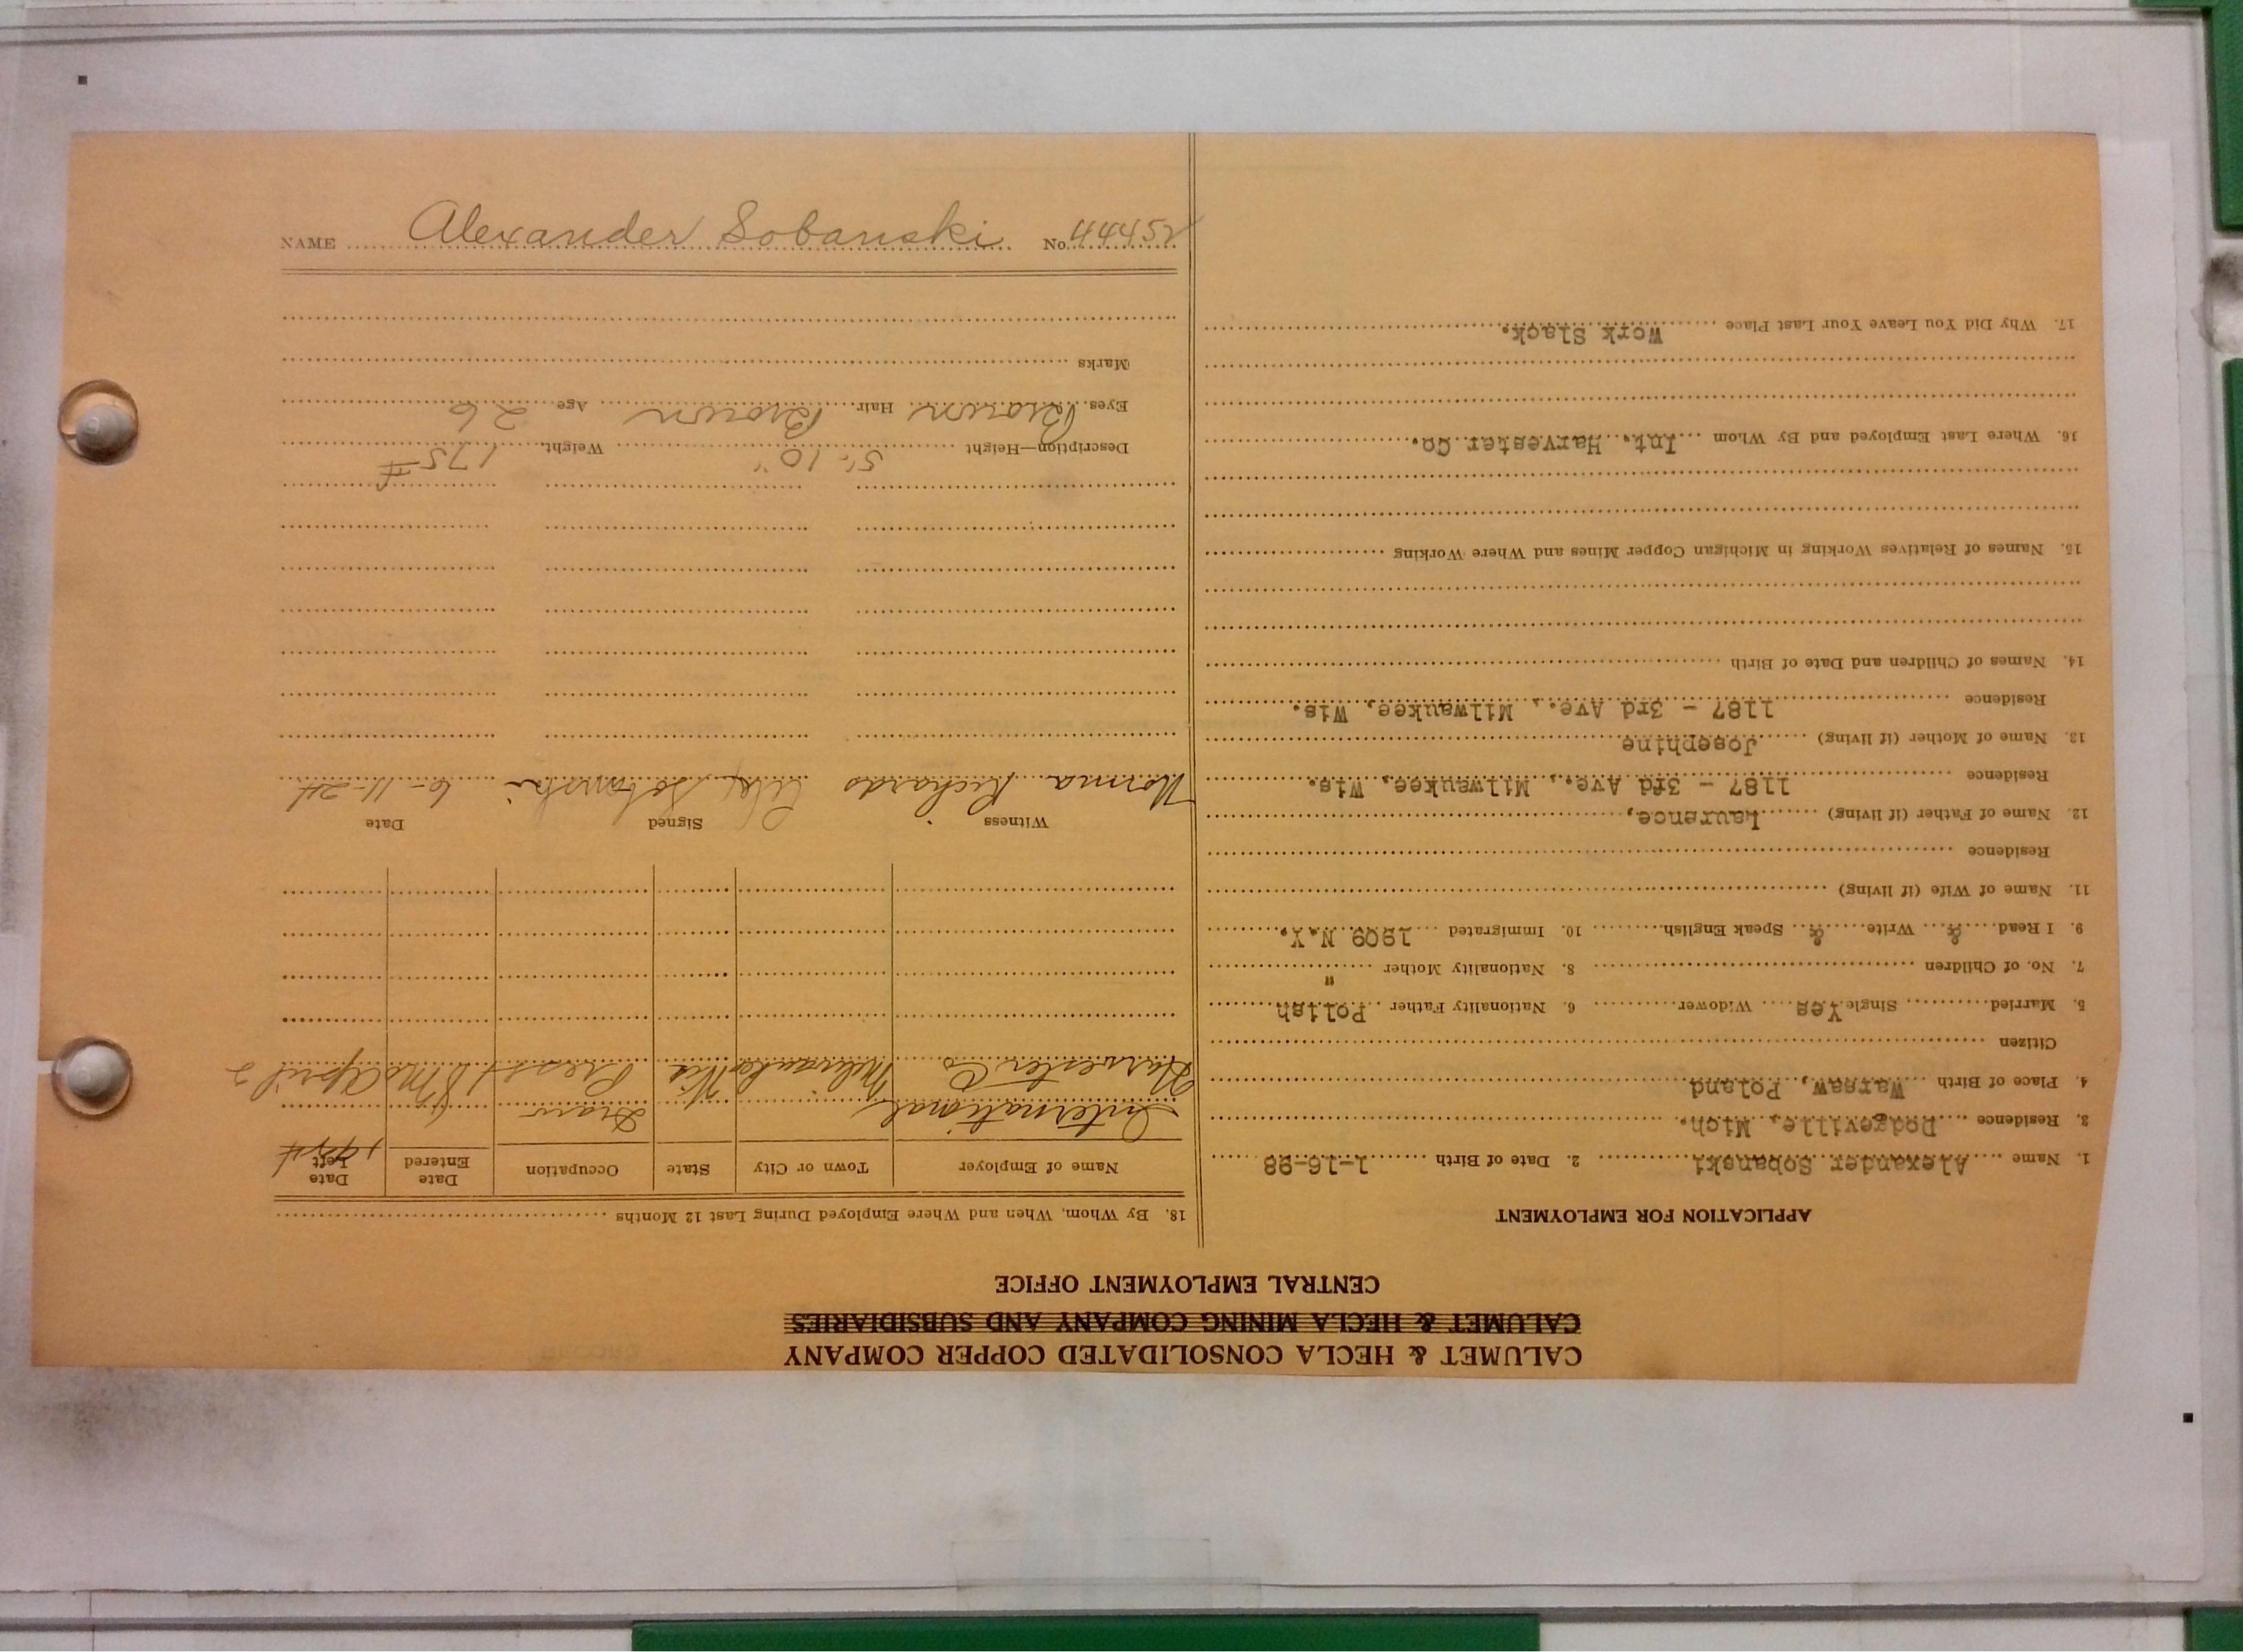 CALUMET & HECLA CONSOLIDATED COPPER COMPANY
CALUMET & HECLA MINING COMPANY AND SUBSIDIARIES
CENTRAL EMPLOYMENT OFFICE
APPLICATION FOR EMPLOYMENT
1. Name Alexander Sobanski 2. Date of Birth 1-16-98
3. Residence Dodgeville, Mich.
4. Place of Birth Warsaw, Poland
Citizen
5. Married Single Yes Widower 6. Nationality Father Polish
7. No. of Children 8. Nationality Mother "
9. I Read & Write & Speak English 10. Immigrated 1909 N.Y.
11. Name of Wife (if living)
Residence
12. Name of Father (if living) Laurance,
Residence 1187 - 3rd Ave., Milwaukee, Wis.
13. Name of Mother (if living) Josephine
Residence 1187 - 3rd Ave., Milwaukee, Wis.
14. Names of Children and Date of Birth
15. Names of Relatives Working in Michigan Copper Mines and Where Working
16. Where Last Employed and By Whom Int. Harvester Co.
17. Why Did You Leave Your Last Place Work Slack.
18. By Whom, When and Where Employed During Last 12 Months
Name of Employer Town or City State Occupation Date Entered Date Left
1924
International Draw
Harvester Co. Milwaukee Wis Press 8 Mo April 2
Witness Signed Date
Norma Richards Alex Sobanski 6-11-24
Description—Height 5' 10" Weight 175 #
Eyes Brown Hair Brown Age 26
Marks
NAME Alexander Sobanski No. 44452